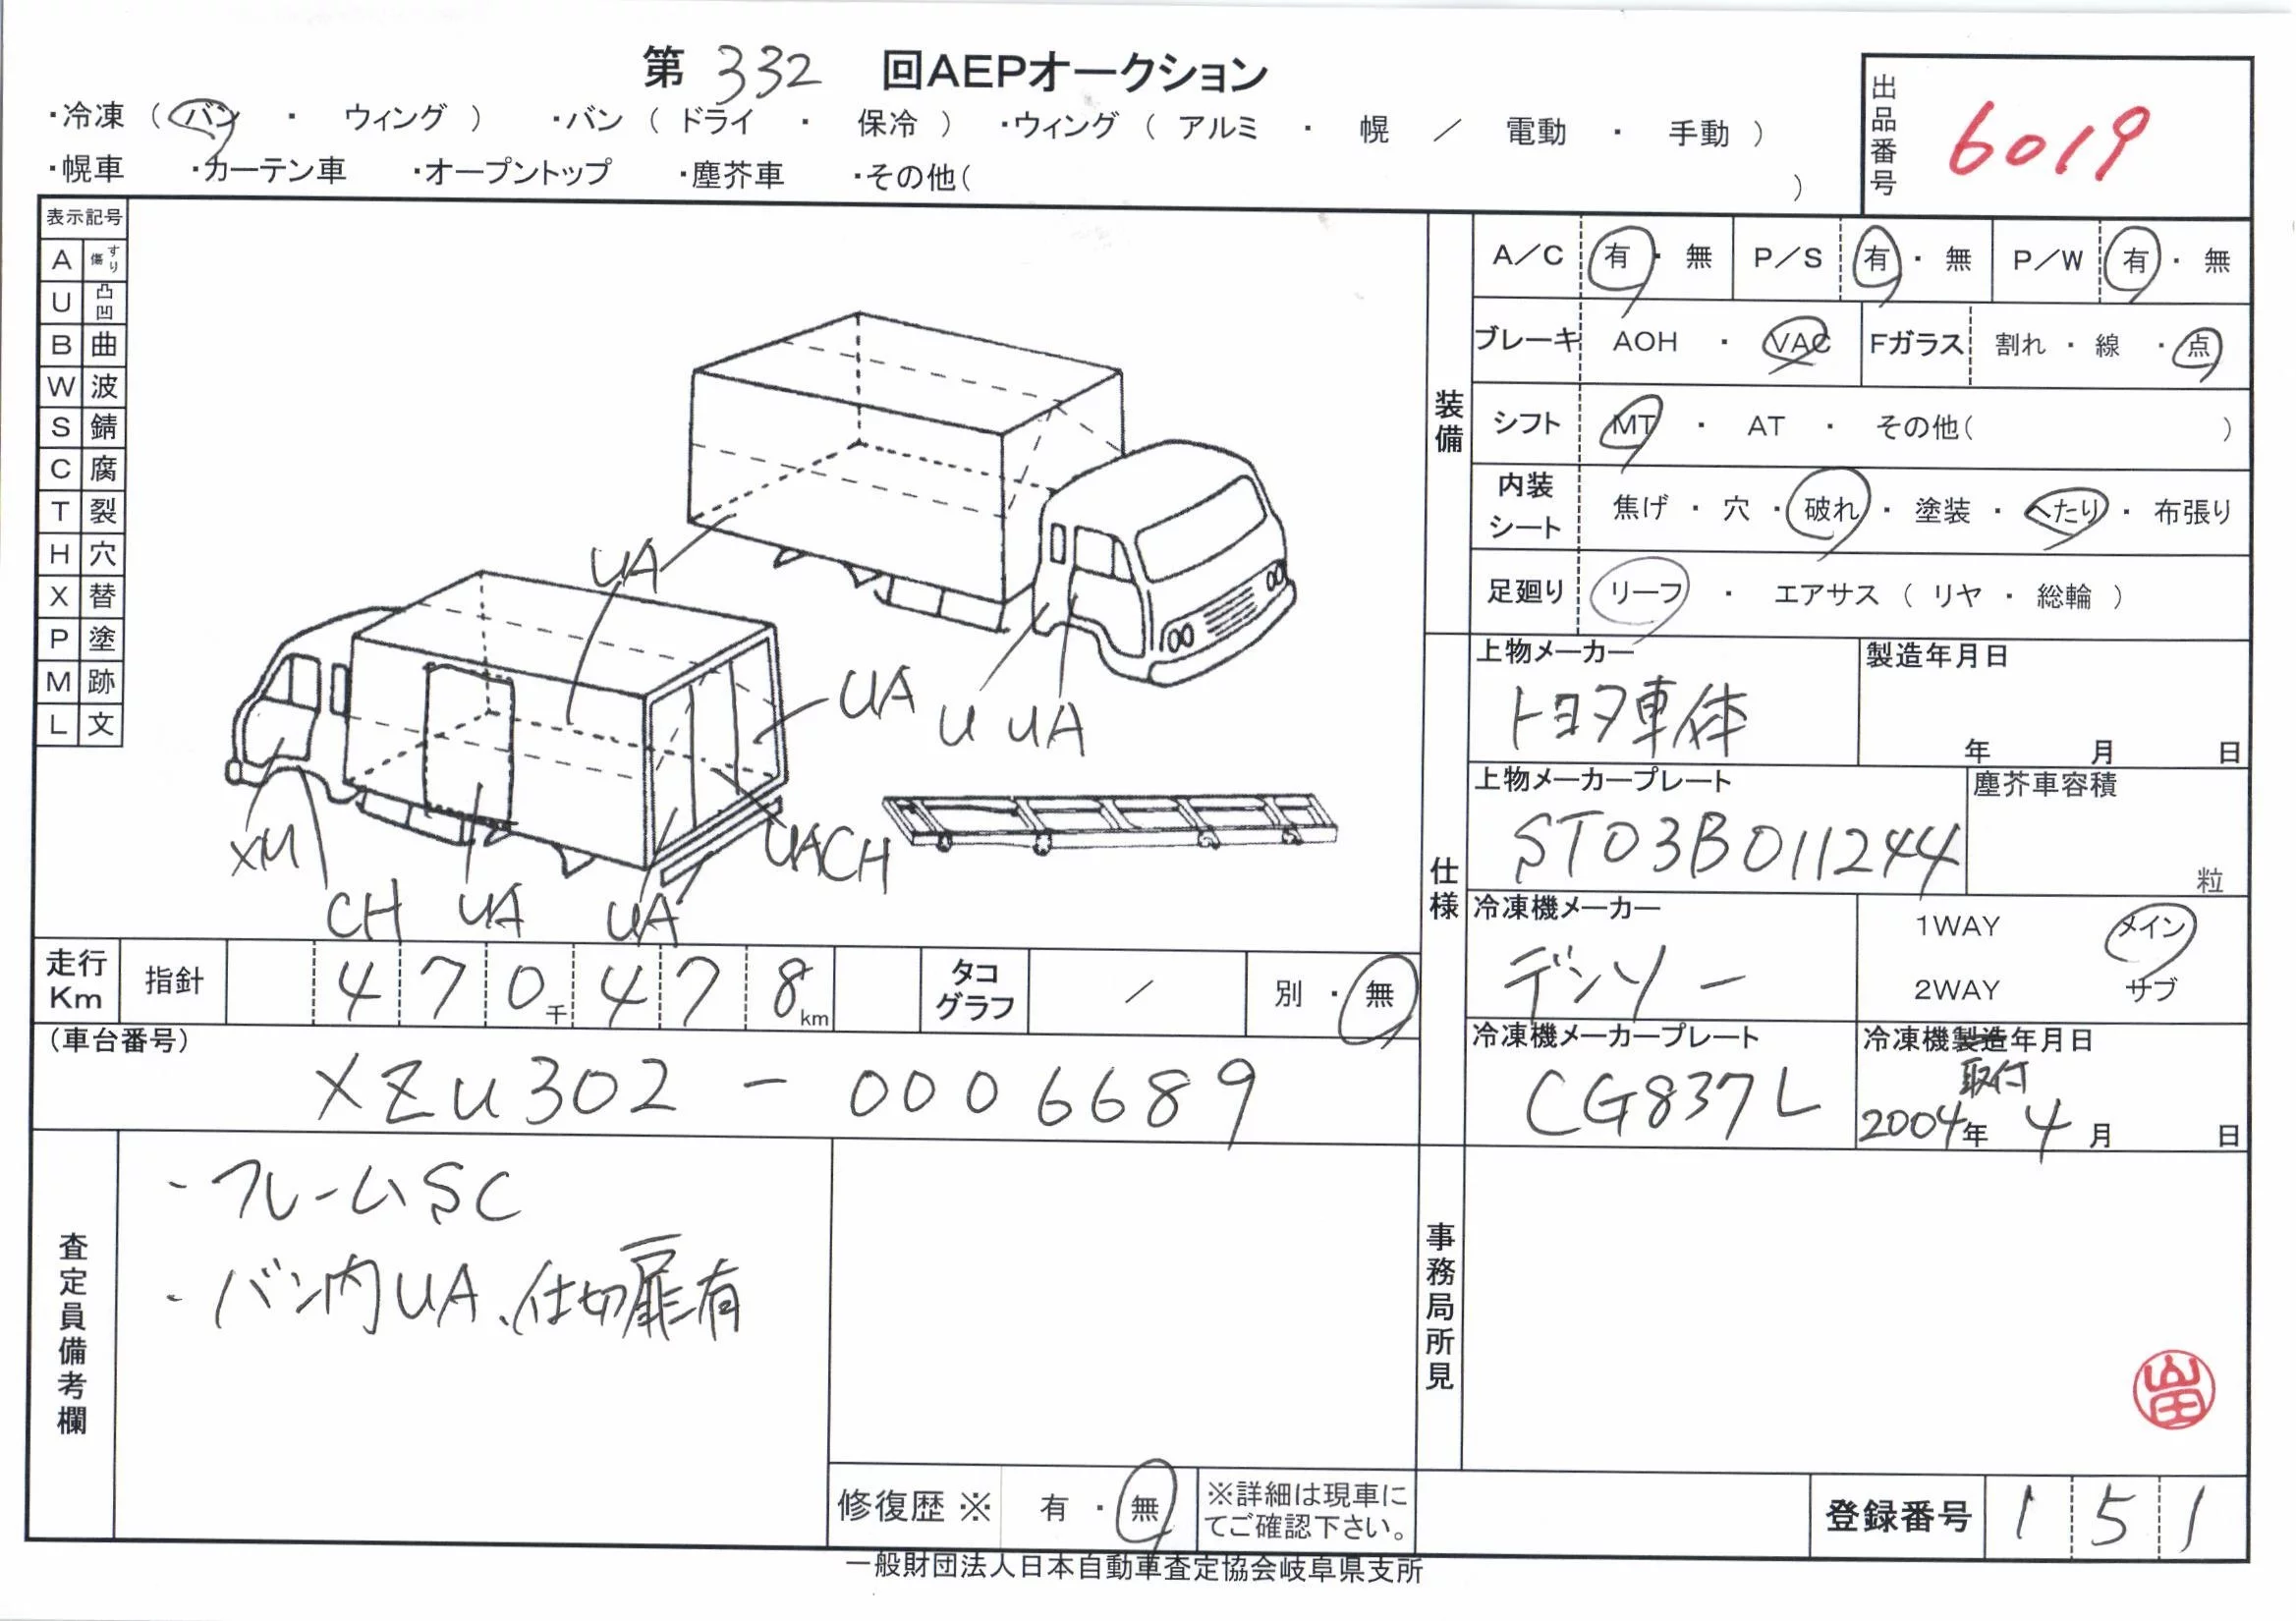 第 332 回AEPオークション
・冷凍 ( バン ・ ウィング ) ・バン ( ドライ ・ 保冷 ) ・ウィング ( アルミ ・ 幌 / 電動 ・ 手動 )
・幌車 ・カーテン車 ・オープントップ ・塵芥車 ・その他( )
出品番号
6019
表示記号
A すり傷
U 凸凹
B 曲
W 波
S 錆
C 腐
T 裂
H 穴
X 替
P 塗
M 跡
L 文
UA
UA
U UA
XU
CH UA UA
UACH
装備
A/C 有 ・ 無 P/S 有 ・ 無 P/W 有 ・ 無
ブレーキ AOH ・ VAC Fガラス 割れ ・ 線 ・ 点
シフト MT ・ AT ・ その他( )
内装シート 焦げ ・ 穴 ・ 破れ ・ 塗装 ・ へたり ・ 布張り
足廻り リーフ ・ エアサス ( リヤ ・ 総輪 )
仕様
上物メーカー 製造年月日
トヨタ車体
年 月 日
上物メーカープレート 塵芥車容積
ST03B011244
粒
冷凍機メーカー 1WAY メイン
デンソー 2WAY サブ
冷凍機メーカープレート 冷凍機製造年月日
取付
CG837L 2004年 4月 日
走行Km 指針 470千478km タコグラフ / 別 ・ 無
(車台番号)
XZU302-0006689
査定員備考欄
・フレームSC
・バン内UA、仕切扉有
事務局所見
山田
修復歴※ 有 ・ 無 ※詳細は現車に
てご確認下さい。
登録番号 151
一般財団法人日本自動車査定協会岐阜県支所